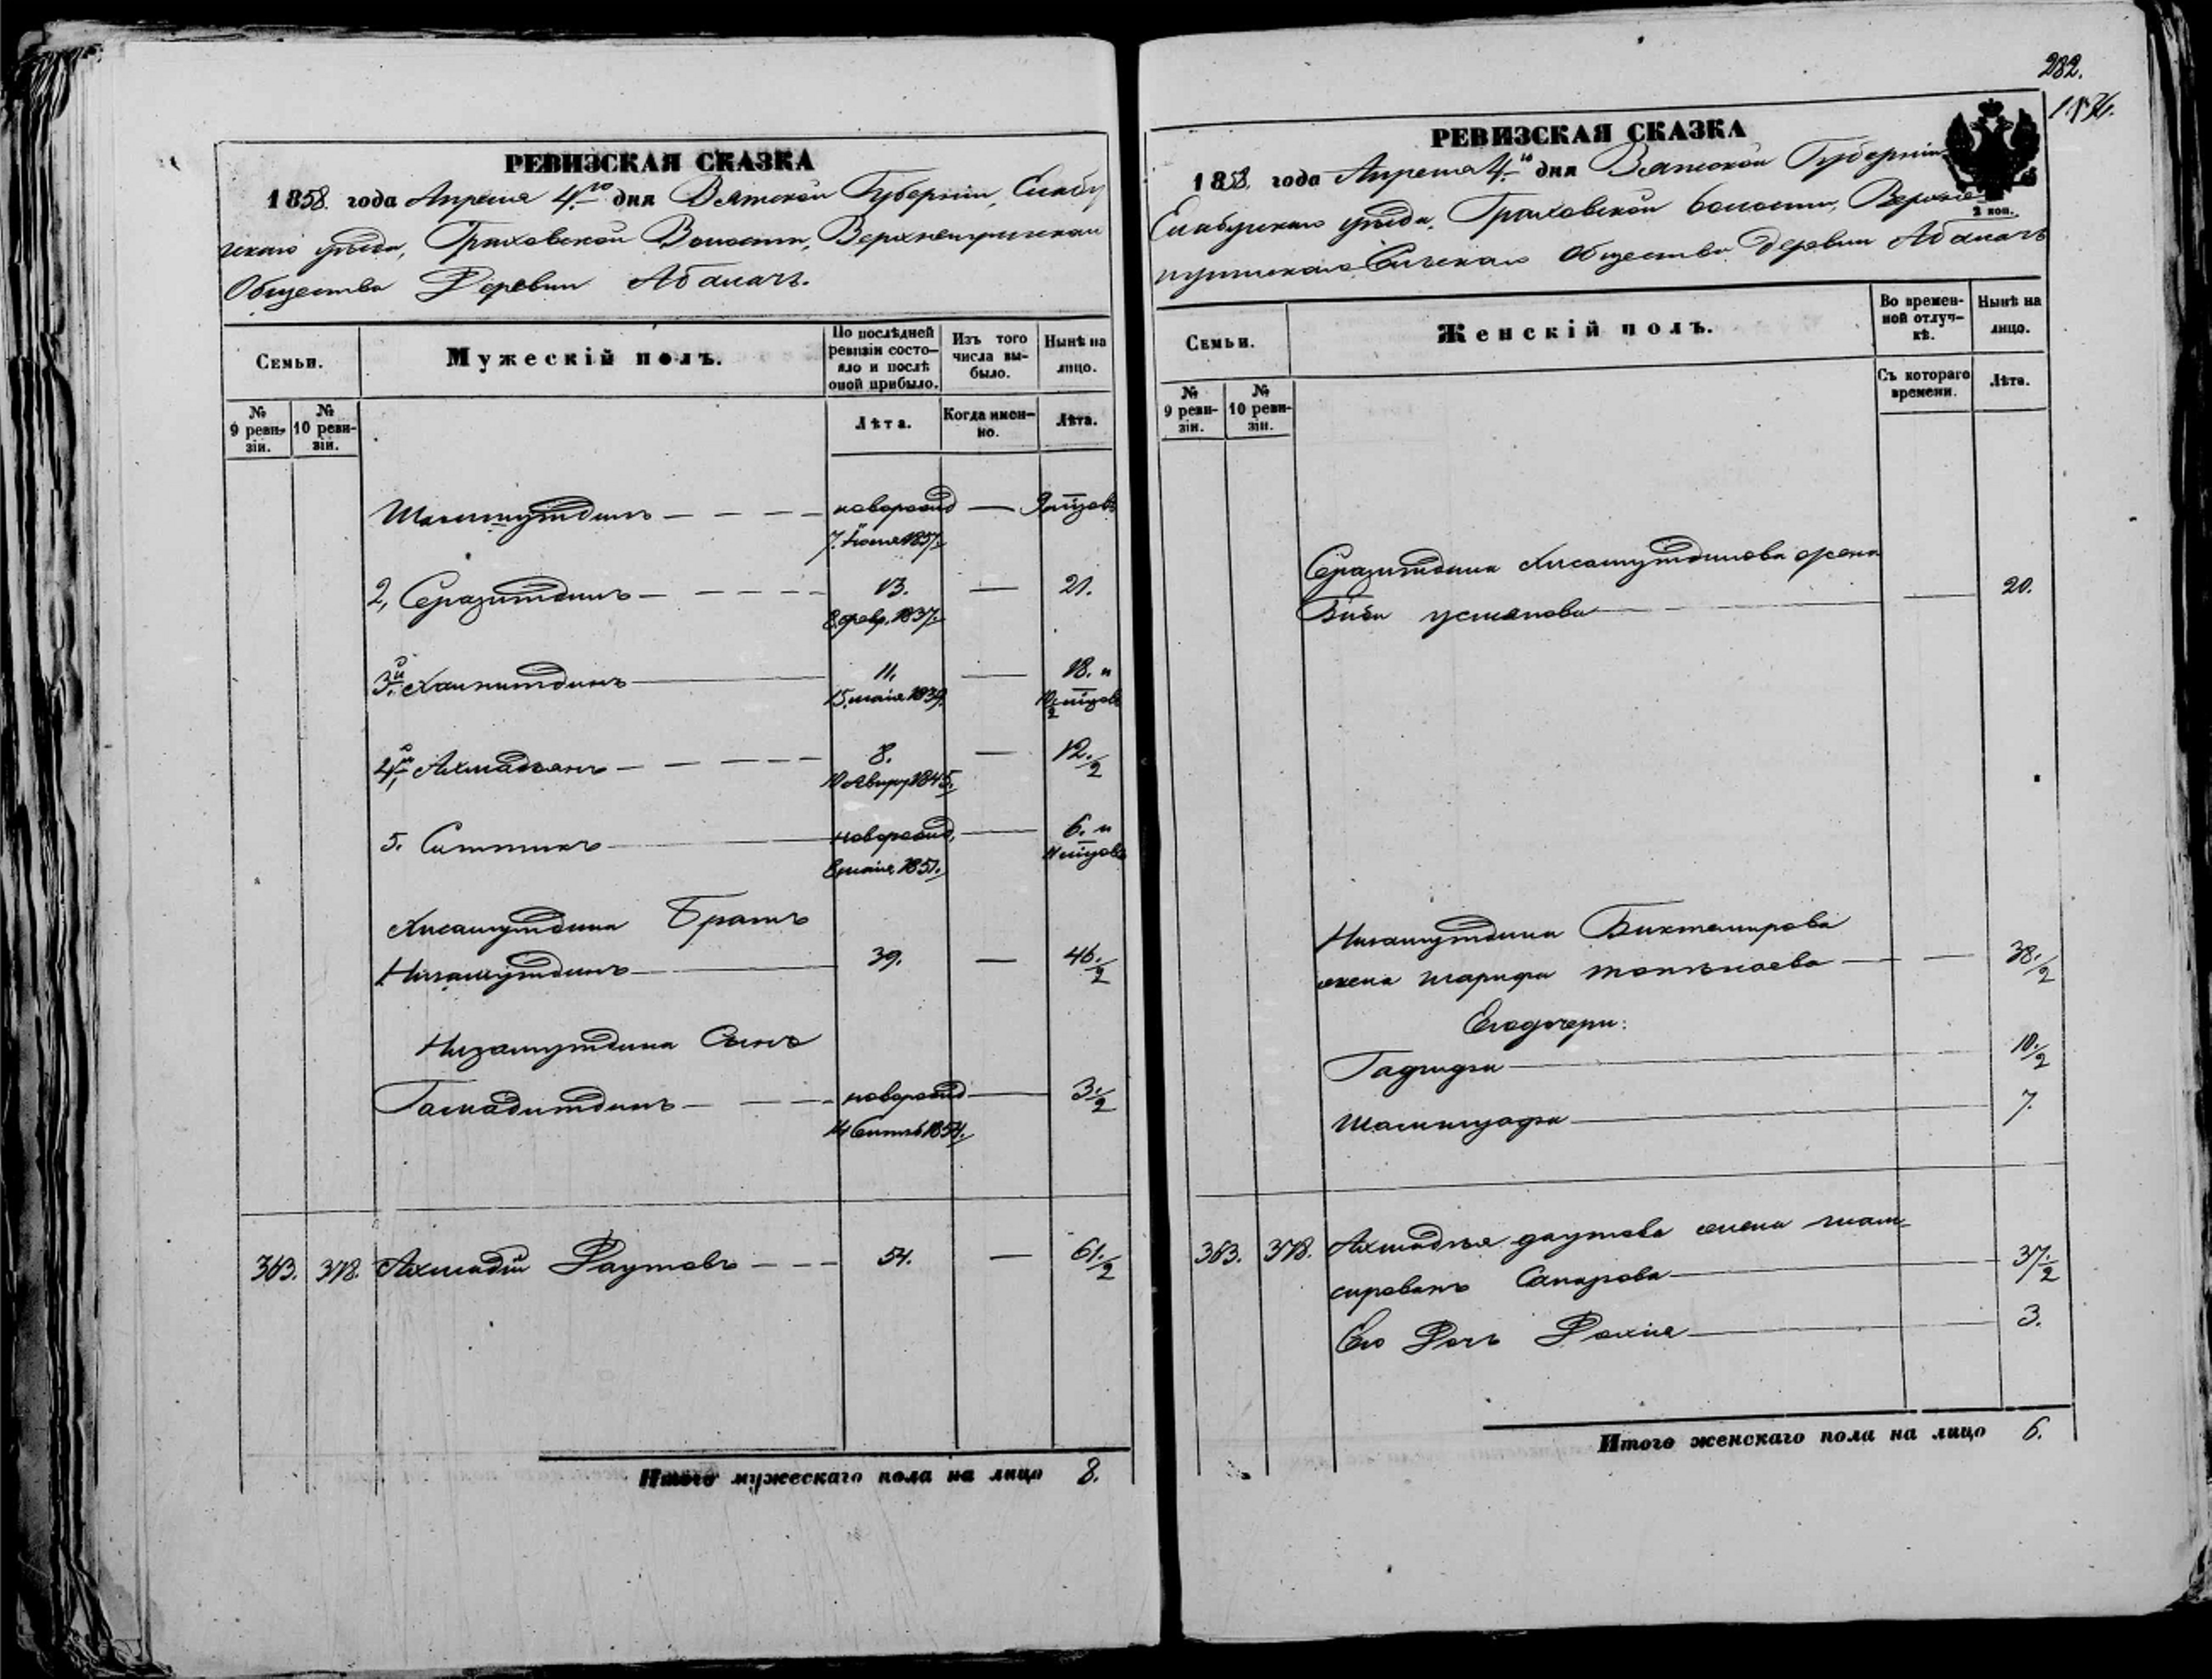 РЕВИЗСКАЯ СКАЗКА
1858. года Апреля 4.го дня Вятской Губерніи, Елабу
жскаго уѣзда, Граховской Волости,
Общества Деревни Абалачъ.
Семьи.
Мужескій полъ.
По послѣдней ревизіи состо-яло и послѣ оной прибыло.
Изъ того числа вы-было.
Нынѣ на лицо.
№ 9 реви-зіи.
№ 10 реви-зіи.
Лѣта.
Когда имен-но.
Лѣта.
новорожд — 9 мѣцовъ
7. Іюня 1857.
2, Серазитдинъ — 13. — 21.
8 февр. 1837.
3й 11. — 18. и
15. маія 1839. 10 1/2 мѣцовъ
4й Ахмадзянъ — 8. — 12. 1/2
10 1845.
5. новорожд. — 6. и
8 маія 1851. 11 мѣцовъ
Хисамутдина Братъ
Низамутдинъ — 39. — 46. 1/2
Низамутдина Сынъ
новорожд — 3 1/2
14 Сентяб 1854.
363. 378. Ахмадій Даутовъ — 54. — 61. 1/2
Итого мужескаго пола на лицо 8.
282.
РЕВИЗСКАЯ СКАЗКА
2 коп.
1858. года Апреля 4.го дня Вятской Губерніи
Елабужскаго уѣзда, Граховской волости,
Сельскаго Общества Деревни Абалачъ
Семьи.
Женскій полъ.
Во времен-ной отлуч-кѣ.
Нынѣ на лицо.
№ 9 реви-зіи.
№ 10 реви-зіи.
Съ котораго времени.
Лѣта.
Серазитдина Хисамутдинова жена
Биби — 20.
Низамутдина Биктемирова
жена Шарифа — 38. 1/2
Его дочери:
10. 1/2
7.
363. 378. Ахмадія Даутова жена
Сапарова — 37. 1/2
Его Дочь — 3.
Итого женскаго пола на лицо 6.